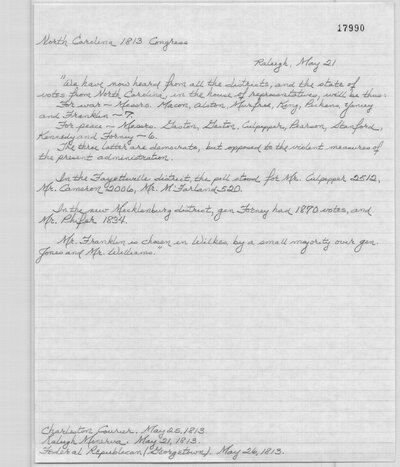 17990
North Carolina 1813 Congress
Raleigh, May 21
"We have now heard from all the districts, and the state of
votes from North Carolina, in the house of representatives, will be thus:
For war ~ Messrs. Macon, Alston, Murfree, King, Pickens, Yancey
and Franklin ~ 7.
For peace ~ Messrs. Gaston, Culpepper, Pearson, Stanford,
Kennedy and Forney ~ 6.
The three latter are democrats, but opposed to the violent measures of
the present administration.
In the Fayetteville district, the poll stood for Mr. Culpepper 2512,
Mr. Cameron 2006, Mr. McFarland 520.
In the new Mecklenburg district, gen Forney had 1870 votes, and
Mr. Phifer 1834.
Mr. Franklin is chosen in Wilkes by a small majority over gen.
Jones and Mr. Williams."
Charleston Courier. May 25, 1813.
Raleigh Minerva. May 21, 1813.
Federal Republican (Georgetown). May 26, 1813.